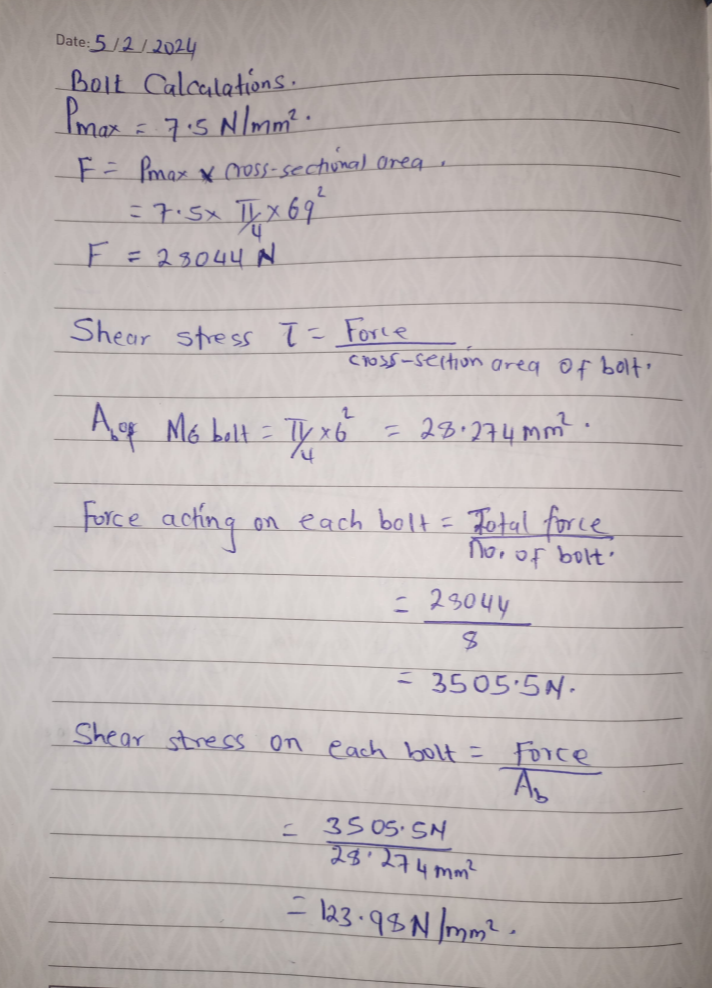 Date: 5/2/2024
Bolt Calculations.
Pmax = 7.5 N/mm².
F = Pmax x cross-sectional area.
= 7.5 x π/4 x 69²
F = 28044 N
Shear stress τ = Force / cross-section area of bolt.
Ab of M6 bolt = π/4 x 6² = 28.274 mm².
Force acting on each bolt = Total force / no. of bolt.
= 28044 / 8
= 3505.5N.
Shear stress on each bolt = Force / Ab
= 3505.5N / 28.274 mm²
= 123.98 N/mm².